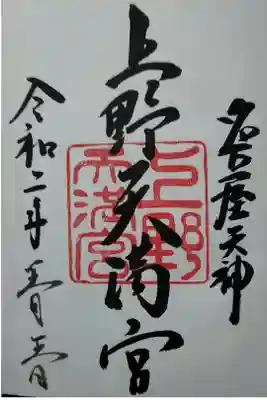 名古屋天神
上野天満宮
上野
天満宮
令和二年 月 日